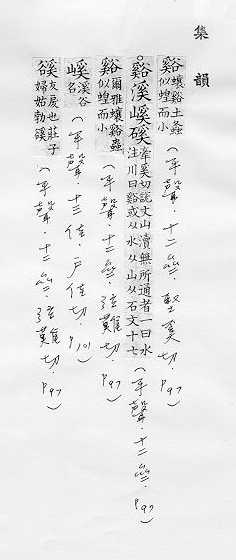 集韻
谿蠰谿土螽似蝗而小（平聲．十二齊．堅奚切．P97）
。谿溪嵠磎牽奚切說文山瀆無所通者一曰水注川曰谿或从水从山从石文十七（平聲．十二齊．P97）
谿爾雅蠰谿螽似蝗而小（平聲．十二齊．弦雞切．P97）
嵠溪谷名（平聲．十三佳．戶佳切．P101）
谿反戾也莊子婦姑勃谿（平聲．十二齊．弦雞切．P97）